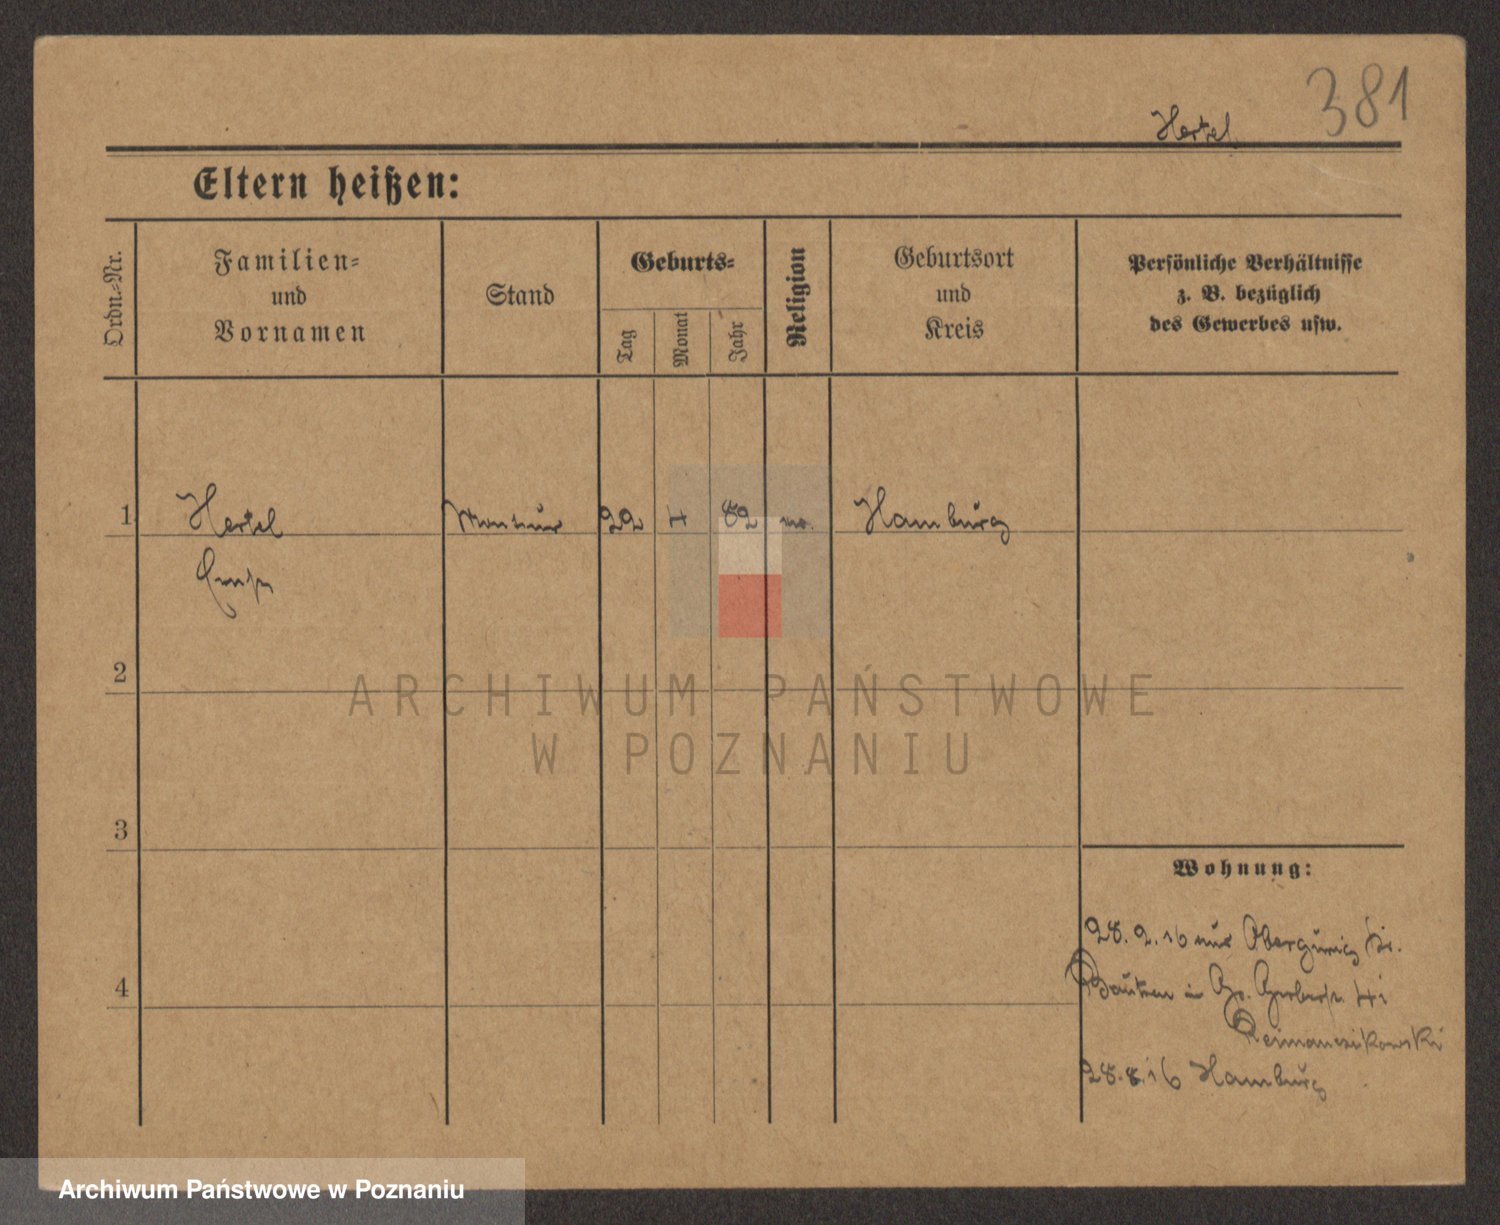 381
Hertel
Eltern heißen:
Ordn.-Nr.
Familien-
und
Vornamen
Stand
Geburts-
Tag
Monat
Jahr
Religion
Geburtsort
und
Kreis
Persönliche Verhältnisse
z. B. bezüglich
des Gewerbes usw.
1 Hertel Monteur 22 4 82 Hamburg
2
ARCHIWUM PAŃSTWOWE
W POZNANIU
3
Wohnung:
28. 2. 16 aus Obergurig Kr.
4
Bautzen in Gr. Gerberstr. 41
28. 8. 16 Hamburg
Archiwum Państwowe w Poznaniu